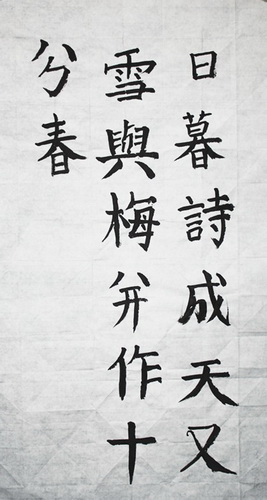 日暮詩成天又
雪與梅并作十
分春